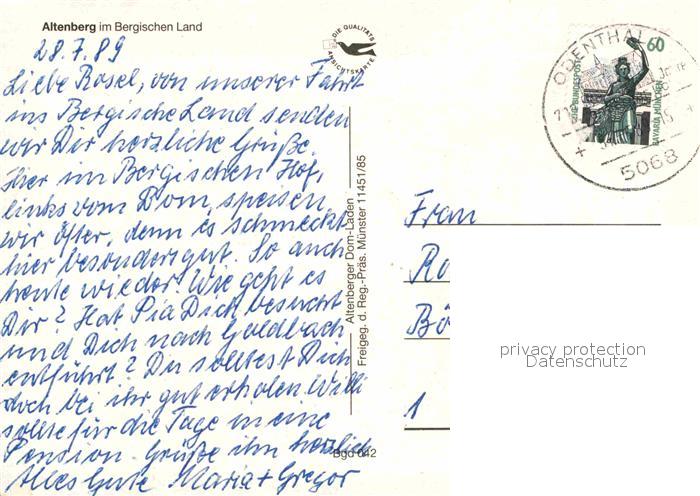 Altenberg im Bergischen Land
28.7.89
Liebe Rosel, von unserer Fahrt
ins Bergische Land senden
wir Dir herzliche Grüße.
Hier im Bergischen Hof,
links vom Dom, speisen
wir öfter, denn es schmeckt
hier besonders gut. So auch
heute wieder. Wie geht es
Dir? Hat Pia Dich besucht
und Dich nach Goldbach
entführt? Du solltest Dich
doch bei ihr gut erholen. Willi
sollte für die Tage in eine
Pension. Grüße ihn herzlich
Alles Gute Maria + Gregor
DIE QUALITÄTS
ANSICHTSKARTE
Altenberger Dom-Laden
Freigeg. d. Reg.-Präs. Münster 11451/85
Bgd 042
ODENTHAL
5068
60
DEUTSCHE BUNDESPOST
BAVARIA MÜNCHEN
Frau
Ro
Bö
1
privacy protection
Datenschutz